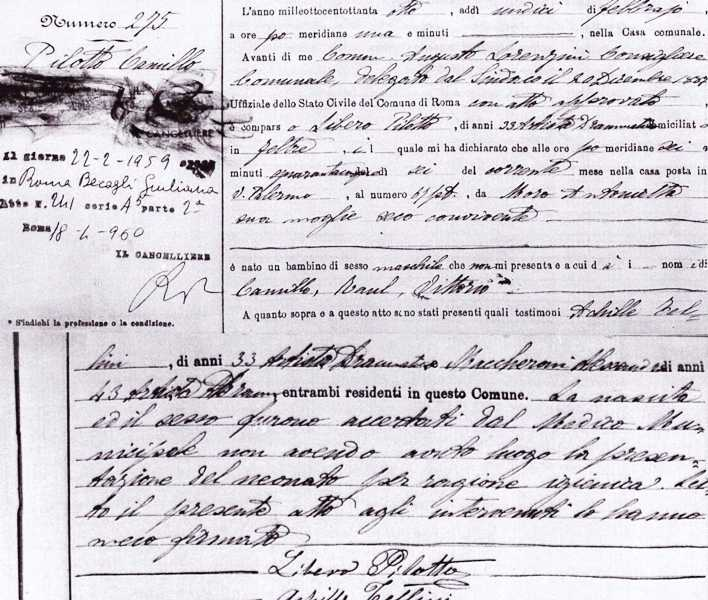 Numero 275
Pilotto Camillo
CANCELLIERE
Il giorno 22-2-1959
in Roma Becagli Giuliana
Atto N. 241 serie A parte 2ª
Roma 18-1-960
IL CANCELLIERE
* S'indichi la professione o la condizione.
L'anno milleottocentottanta otto, addì undici di febbrajo,
a ore po meridiane una e minuti, nella Casa comunale.
Avanti di me Comm. Augusto Lorenzini Consigliere
Comunale, delegato dal Sindaco il 20 Dicembre 1887
Uffiziale dello Stato Civile del Comune di Roma con atto approvato
è comparso Libero Pilotto, di anni 33 Artista Drammatico domiciliato
in Feltre, il quale mi ha dichiarato che alle ore po meridiane sei e
minuti quaranta del dì sei del corrente mese nella casa posta in
V. Palermo, al numero, da Moro Antonietta
sua moglie seco convivente
è nato un bambino di sesso maschile che non mi presenta e a cui dà i nomi di
Camillo, Raul, Vittorio
A quanto sopra e a questo atto sono stati presenti quali testimoni Achille Tel-
lini, di anni 33 Artista Drammatico e Muccheroni Alessandro di anni
43 Artista Dramm, entrambi residenti in questo Comune. La nascita
ed il sesso furono accertati dal Medico Mu-
nicipale non avendo avuto luogo la presen-
tazione del neonato per ragione igienica. Let-
to il presente atto agli intervenuti lo hanno
meco firmato
Libero Pilotto
Achille Tellini